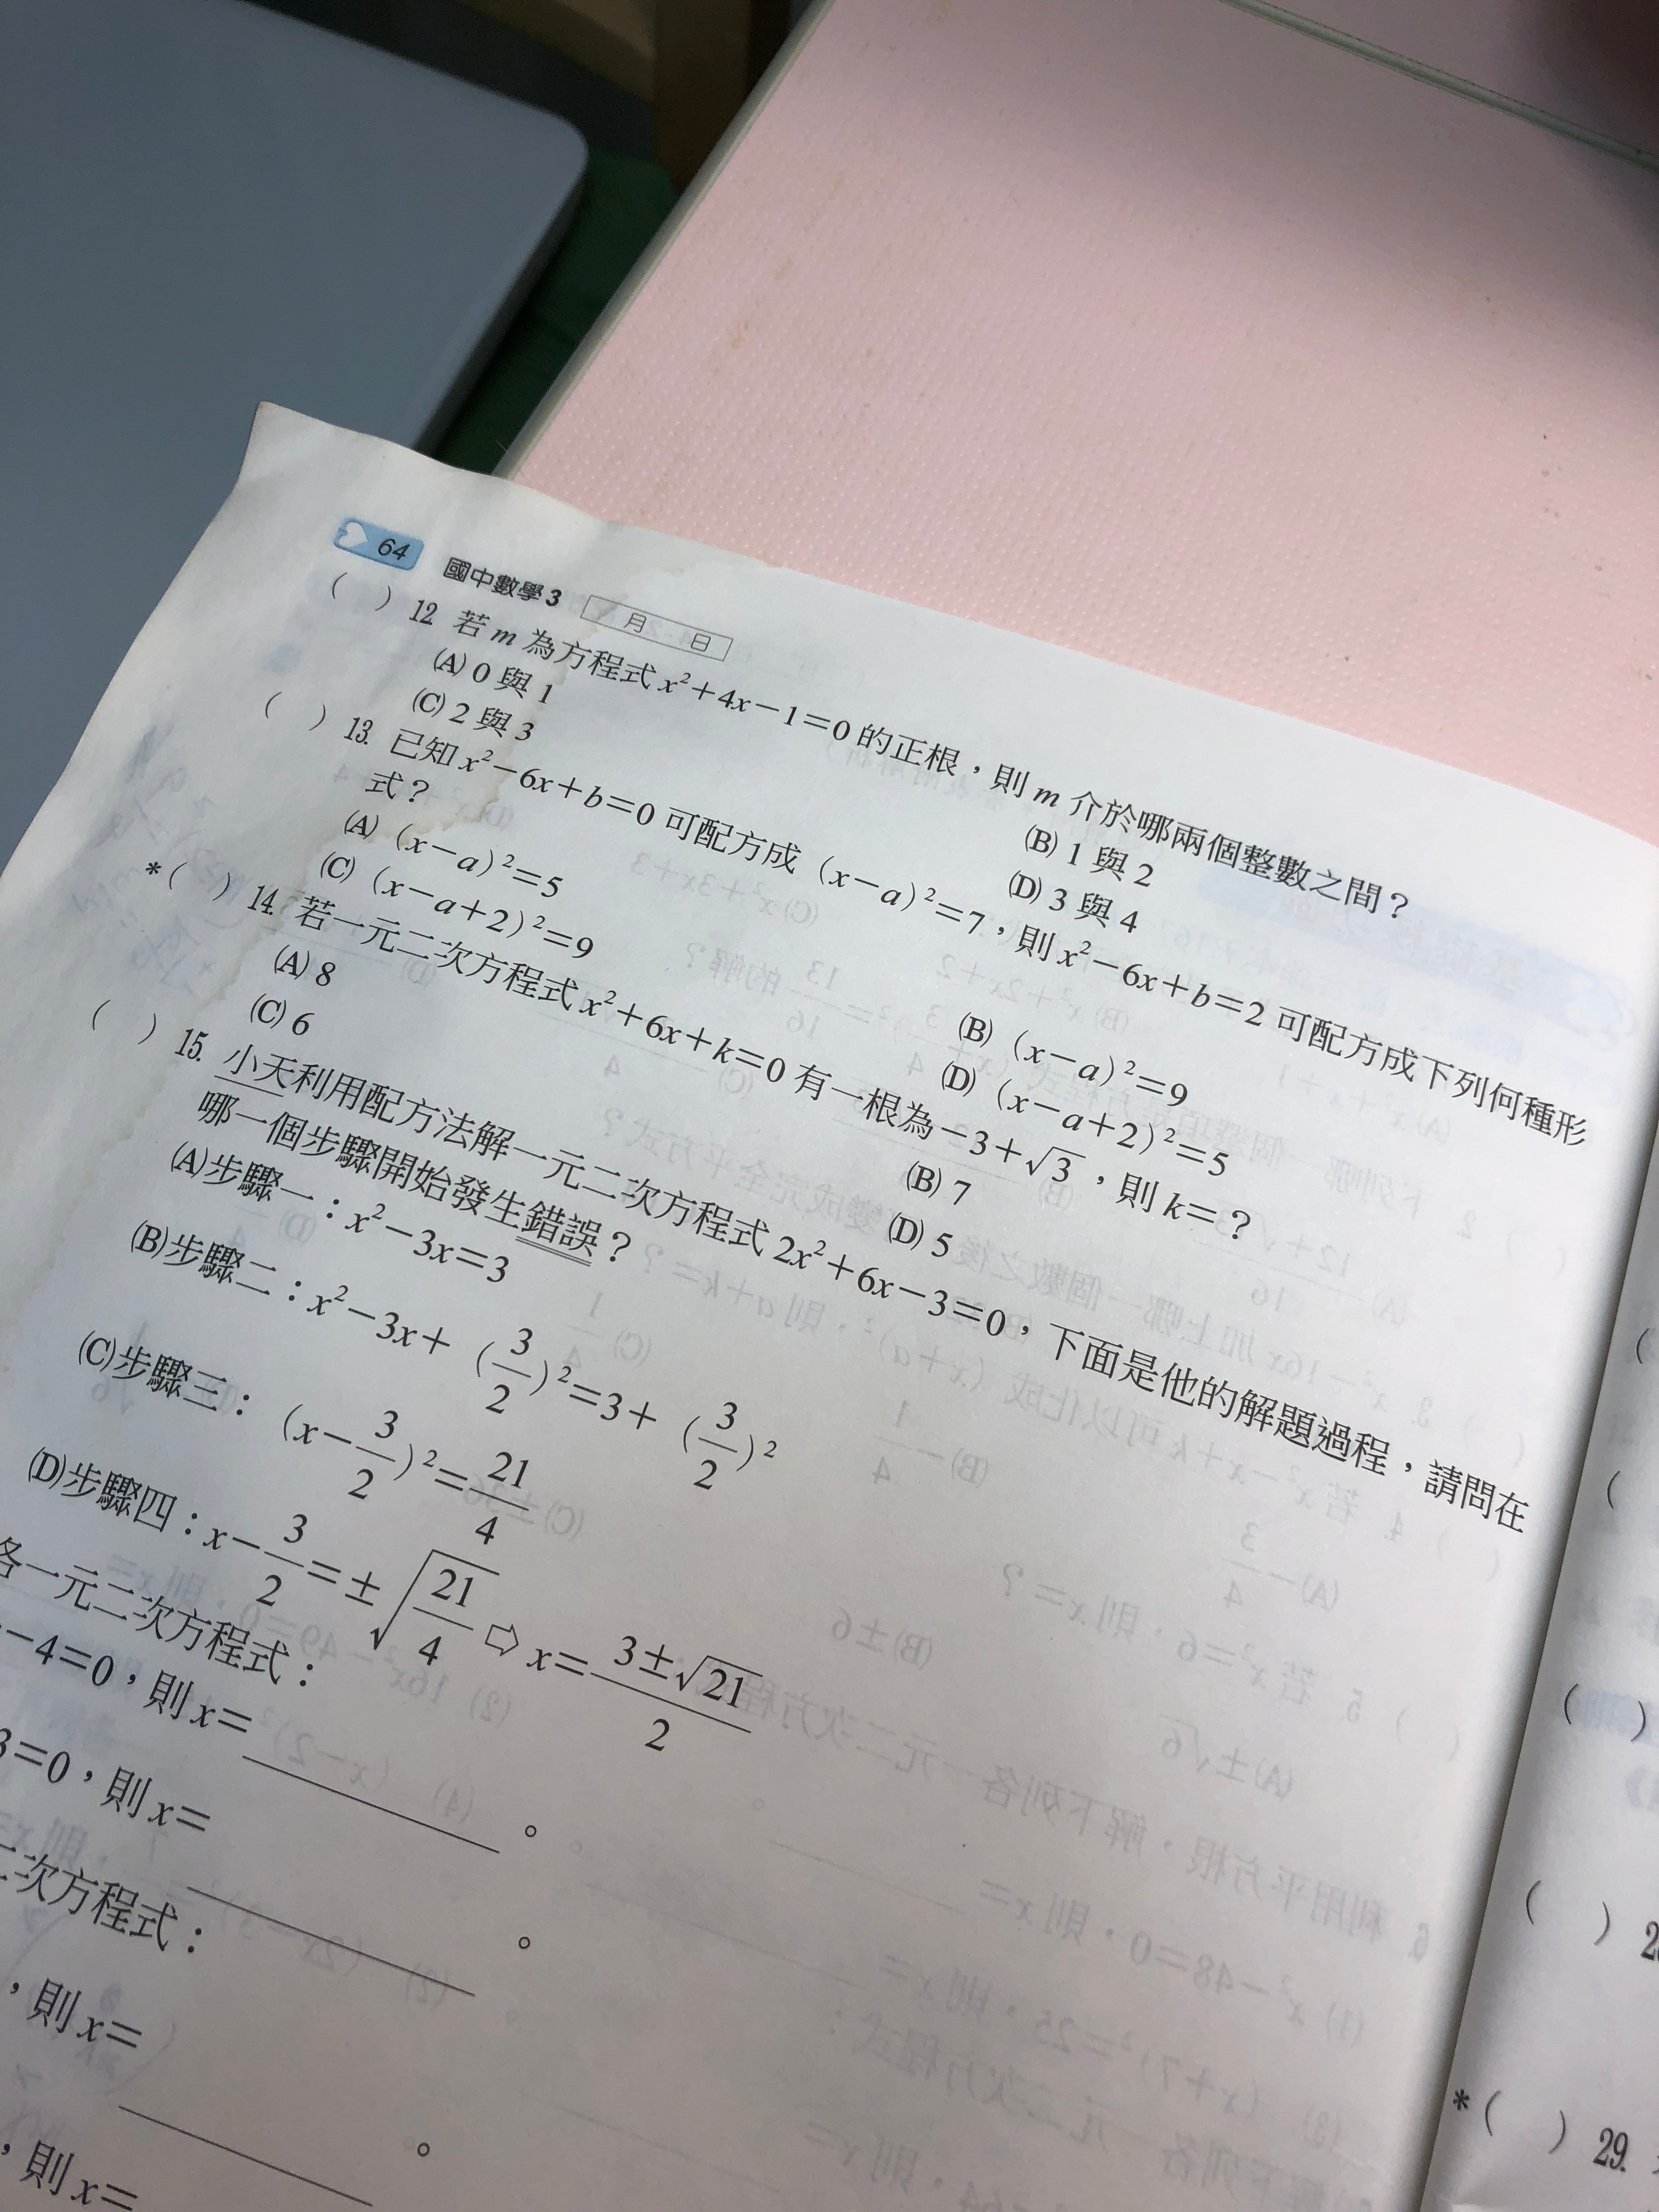 64 國中數學3 月 日
( ) 12. 若 m 為方程式 x²+4x-1=0 的正根,則 m 介於哪兩個整數之間?
(A) 0 與 1 (B) 1 與 2
(C) 2 與 3 (D) 3 與 4
( ) 13. 已知 x²-6x+b=0 可配方成 (x-a)²=7,則 x²-6x+b=2 可配方成下列何種形
式?
(A) (x-a)²=5 (B) (x-a)²=9
(C) (x-a+2)²=9 (D) (x-a+2)²=5
*( ) 14. 若一元二次方程式 x²+6x+k=0 有一根為 -3+√3,則 k=?
(A) 8 (B) 7
(C) 6 (D) 5
( ) 15. 小天利用配方法解一元二次方程式 2x²+6x-3=0,下面是他的解題過程,請問在
哪一個步驟開始發生錯誤?
(A)步驟一:x²-3x=3
(B)步驟二:x²-3x+(3/2)²=3+(3/2)²
(C)步驟三:(x-3/2)²=21/4
(D)步驟四:x-3/2=±√(21/4) ⇨ x=(3±√21)/2
各一元二次方程式:
-4=0,則 x= 。
3=0,則 x= 。
二次方程式:
,則 x= 。
,則 x=
( )
( )
*( ) 29.